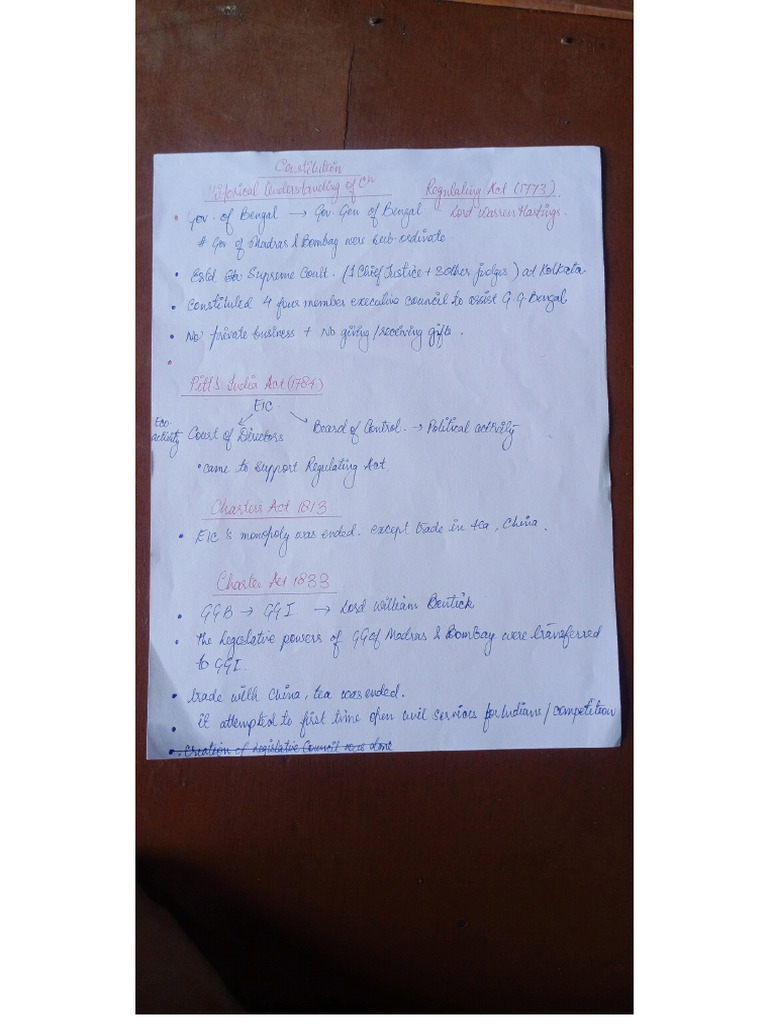 Constitution
Historical Understanding of Cn
Regulating Act (1773).
Lord Warren Hastings.
• Gov. of Bengal → Gov. Gen of Bengal
# Gov of Madras & Bombay were sub-ordinate
• Estd Supreme Coult. (1 Chief Justice + 3 other judges) at Kolkata
• Constituted 4 four member executive council to assist G.G. Bengal
• No private business + No giving/receiving gifts.
•
Pitt's India Act (1784)
EIC
Eco. activity Court of Directors
Board of Control. → Political activity
• came to support Regulating Act.
Charters Act 1813
• EIC's monopoly was ended. except trade in tea, China.
Charter Act 1833
• GGB → GGI → Lord William Bentick
• the legislative powers of GG of Madras & Bombay were transferred
to GGI.
• trade with China, tea was ended.
• it attempted to first time open civil services for Indians / competition
• Creation of Legislative Council was done